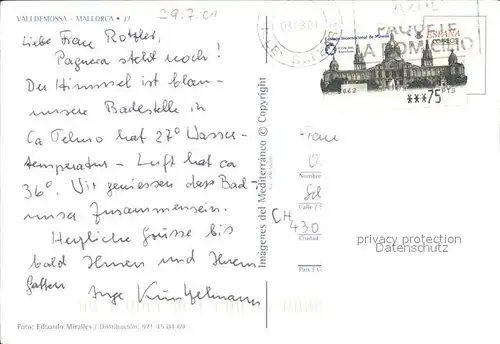 VALLDEMOSSA - MALLORCA • 37
29.7.01
Liebe Frau Rotzler,
Paguera steht noch!
Der Himmel ist blau -
unsere Badestelle in
Ca Telmo hat 27° Wasser-
temperatur - Luft hat ca
36°. Wir geniessen das
unser Zusammensein.
Herzliche Grüsse bis
bald Ihnen und Ihrem
Gatten Inge
Foto: Eduardo Miralles / Distribución: 971 45 04 69
Imágenes del Mediterráneo © Copyright
03.08.01
PAQUETE
A DOMICILIO
ESPAÑA
CORREOS
***75
PTS
Frau
Nombre
Calle
Ciudad
CH
430
País / C
privacy protection
watermark